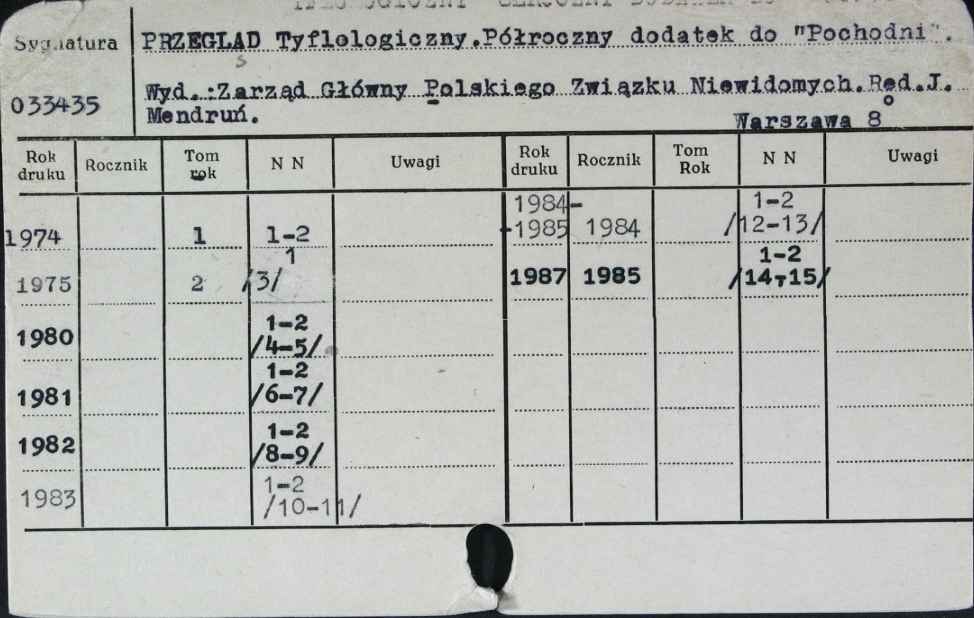 Sygnatura
PRZEGLĄD Tyflologiczny.Półroczny dodatek do "Pochodni".
033435
Wyd.:Zarząd Główny Polskiego Związku Niewidomych.Red.J.
Mendruń.
Warszawa 8°
Rok druku Rocznik Tom rok N N Uwagi Rok druku Rocznik Tom Rok N N Uwagi
1974 1 1-2
1975 2 1 /3/
1980 1-2 /4-5/
1981 1-2 /6-7/
1982 1-2 /8-9/
1983 1-2 /10-11/
1984- -1985 1984 1-2 /12-13/
1987 1985 1-2 /14-15/